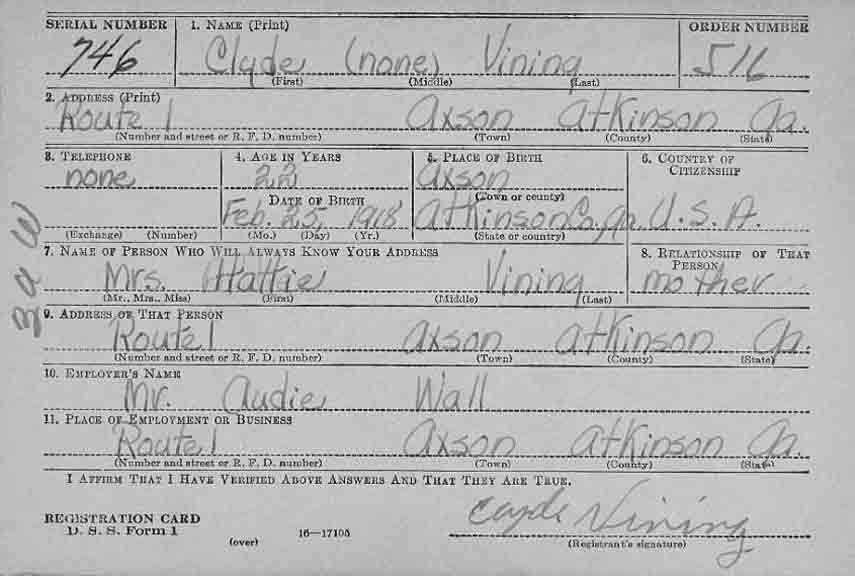 SERIAL NUMBER 1. NAME (Print) ORDER NUMBER
746 Clyde (none) Vining 516
(First) (Middle) (Last)
2. ADDRESS (Print)
Route 1 Axson Atkinson Ga.
(Number and street or R. F. D. number) (Town) (County) (State)
3. TELEPHONE 4. AGE IN YEARS 5. PLACE OF BIRTH 6. COUNTRY OF
CITIZENSHIP
none 22 Axson
DATE OF BIRTH (Town or county)
Feb. 25, 1918 Atkinson Co., Ga. U.S.A.
(Exchange) (Number) (Mo.) (Day) (Yr.) (State or country)
7. NAME OF PERSON WHO WILL ALWAYS KNOW YOUR ADDRESS 8. RELATIONSHIP OF THAT
PERSON
Mrs. Hattie Vining mother
(Mr., Mrs., Miss) (First) (Middle) (Last)
9. ADDRESS OF THAT PERSON
Route 1 Axson Atkinson Ga.
(Number and street or R. F. D. number) (Town) (County) (State)
10. EMPLOYER'S NAME
Mr. Audie Wall
11. PLACE OF EMPLOYMENT OR BUSINESS
Route 1 Axson Atkinson Ga.
(Number and street or R. F. D. number) (Town) (County) (State)
I AFFIRM THAT I HAVE VERIFIED ABOVE ANSWERS AND THAT THEY ARE TRUE.
REGISTRATION CARD
D. S. S. Form 1 16—17105 Clyde Vining
(over) (Registrant's signature)